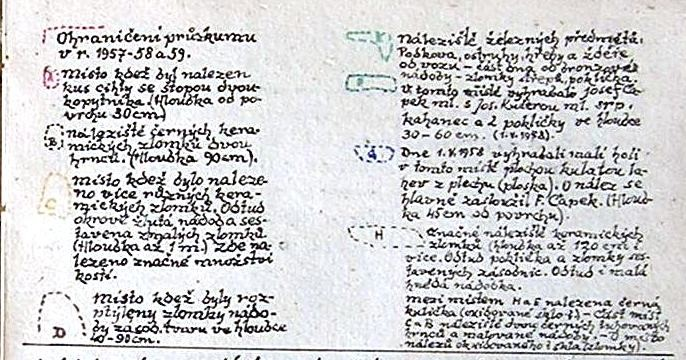 Ohraničení průzkumu
v r. 1957-58 a 59.
A
Místo kdež byl nalezen
kus cihly se stopou dvou-
kopytníka. (Hloubka od po-
vrchu 30 cm)
B
naleziště černých kera-
mických zlomků dvou
hrnců. (Hloubka 90 cm).
C
místo kdež bylo naleze-
no více různých kera-
mických zlomků. Odtud
okrově žlutá nádoba ses-
tavena z malých zlomků
(Hloubka až 1 m.) Zde na-
lezeno značné množství
kostí.
D
místo kdež byly roz-
ptýleny zlomky nádo-
by zásob. tvaru ve hloubce
40-90 cm.
Naleziště železných předmětů.
Podkova, ostruhy, hřeby a zděře
od vozu - část dna od bronzové
nádoby - zlomky střep. poklička.
V tomto místě vyhrabalo Josef Ča-
pek ml. s Jos. Kuterou ml. srp.
kahanec a 2 pokličky ve hloubce
30-60 cm. (1.V.1958).
G
Dne 1.V.1958 vyhrabali malí hoši
v tomto místě plochou kulatou la-
hev z plechu (ploska). O nález se
hlavně zasloužil F. Čapek. (Hloub-
ka 45 cm od povrchu).
H
značné naleziště keramických
zlomků (hloubka až 120 cm i
více. Odtud poklička a zlomky ses-
tavených zásobnic. Odtud i malá
hnědá nádobka.
mezi místem H a E nalezena černá
kulička (oxidované sklo?) - Část míst
C a B naleziště dvou černých tuhovaných
hrnců a malované nádoby. - U
nálezů okrouhleného i skla (zlomky).